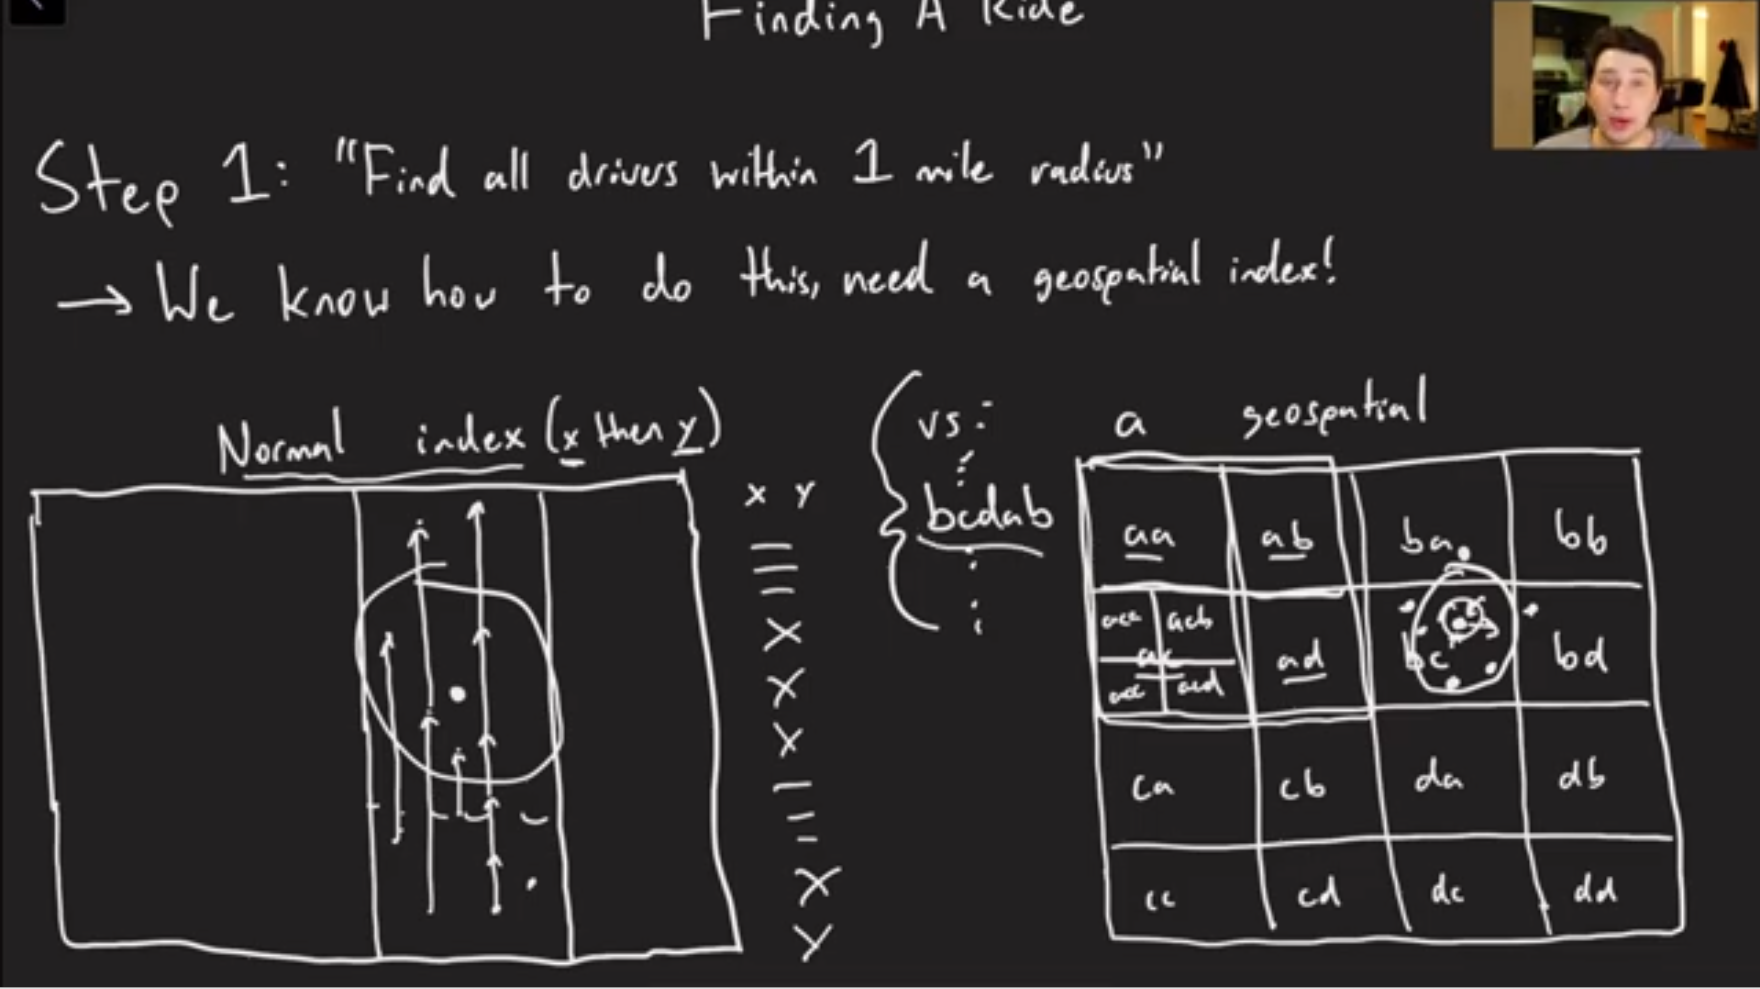 Finding A Ride
Step 1: "Find all drivers within 1 mile radius"
→ We know how to do this, need a geospatial index!
Normal index (x then y)
x y
X
X
X
X
Y
vs:
bcdab
a geospatial
aa ab ba bb
aca acb
ac ad bc bd
acd
ca cb da db
cc cd dc dd